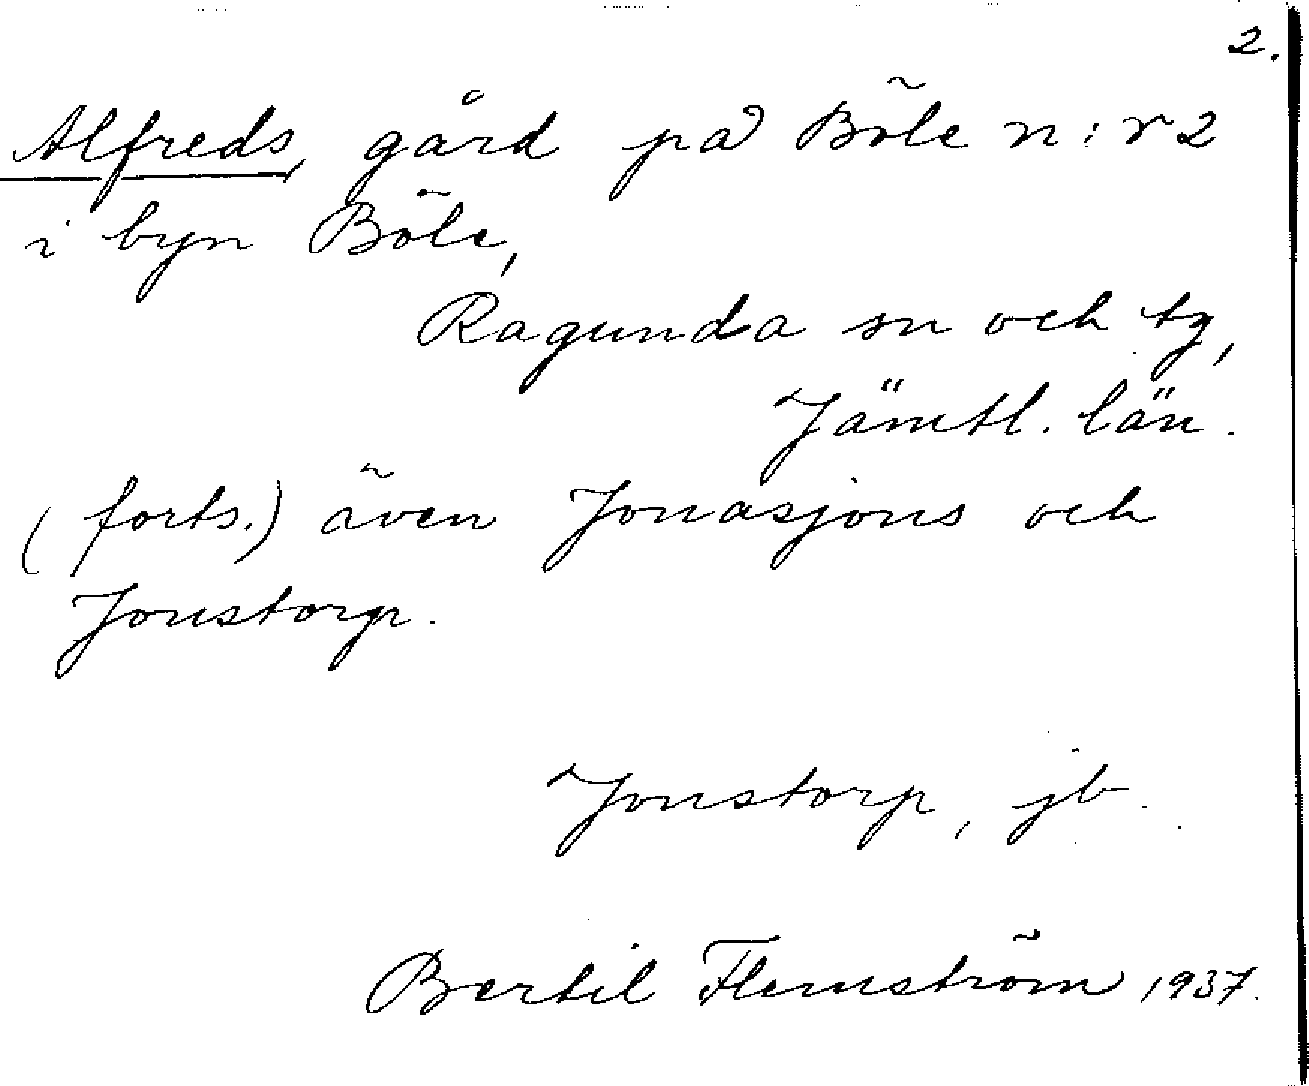 2.
Alfreds, gård på Böle n:r 2
i byn Böle,
Ragunda sn och tg,
Jämtl. län.
(forts.) även Jonasjons och
Jonstorp.
Jonstorp, jb.
Bertil Flemström 1937.